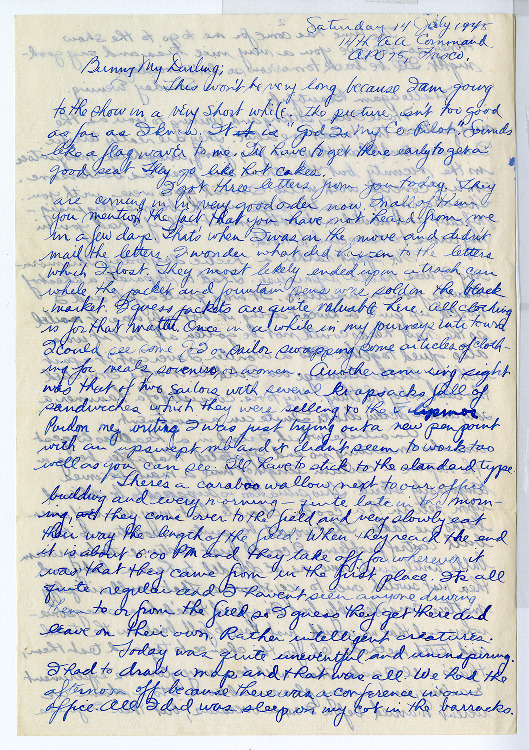 Saturday 14 July 1945
11th A A Command
APO 75, Frisco.
Bunny My Darling;
This won't be very long because I am going
to the show in a very short while. The picture isn't too good
as far as I know. It is "God Is My Co-Pilot". Sounds
like a flag waver to me. I'll have to get there early to get a
good seat. They go like hot cakes.
I got three letters from you today. They
are coming in in very good order now. In all of them
you mention the fact that you have not heard from me
in a few days. That's when I was on the move and didn't
mail the letters. I wonder what did happen to the letters
which I lost. They most likely ended up in a trash can
while the jacket and fountain pens were sold on the black
market. I guess jackets are quite valuable here. All clothing
is for that matter. Once in a while in my journeys into town
I could see some G I or sailor swapping some articles of cloth-
ing for meals, souvenirs, or women. Another amusing sight
was that of two sailors with several knapsacks full of
sandwiches which they were selling to the
Pardon my writing I was just trying out a new pen point
with an upswept nib and it didn't seem to work too
well as you can see. I'll have to stick to the standard type.
There's a carabao wallow next to our office
building and every morning - quite late in the morn-
ing they come over to the field and very slowly eat
their way the length of the field. When they reach the end
it is about 5:00 PM and they take off for wherever it
was that they came from in the first place. It's all
quite regular and I haven't seen anyone driving
them to or from the field so I guess they get there and
leave on their own. Rather intelligent creatures.
Today was quite uneventful and uninspiring.
I had to draw a map and that was all. We had the
afternoon off because there was a conference in our
office. All I did was sleep on my cot in the barracks.